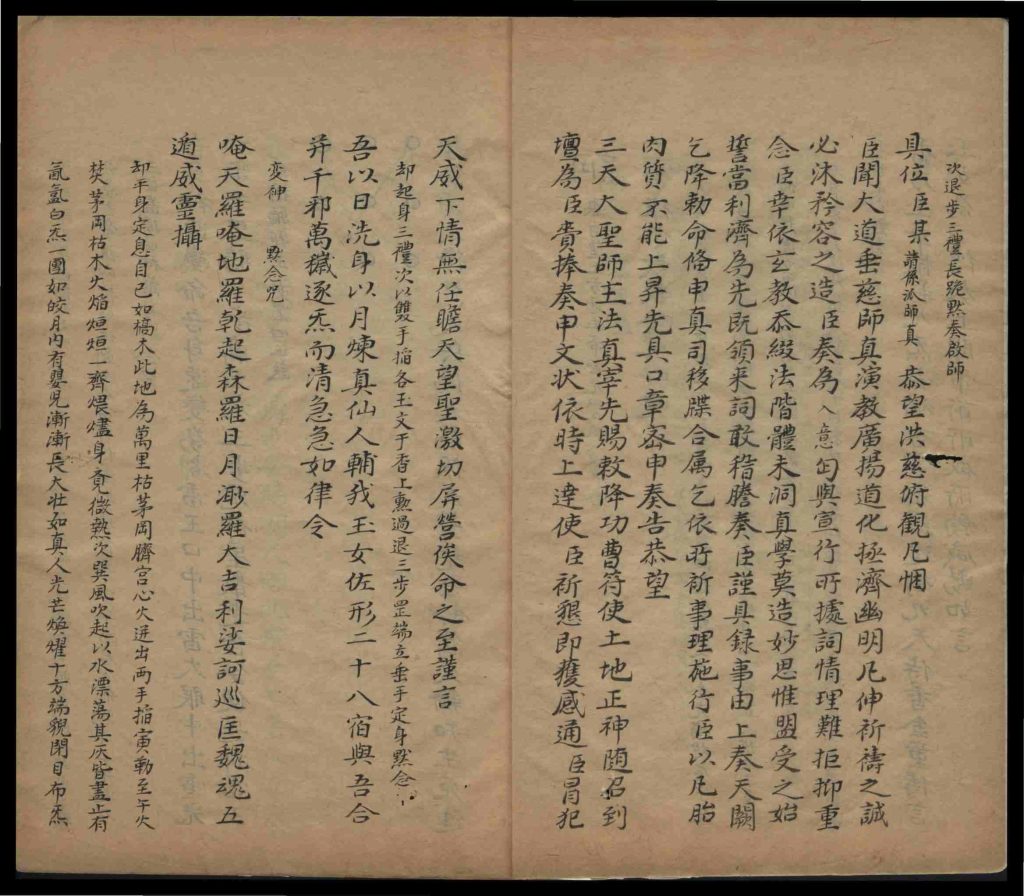 次退步三禮長跪默奏啟師
具位臣某請係派師真恭望洪慈俯觀凡悃
臣聞大道垂慈師真演教廣揚道化拯濟幽明凡伸祈禱之誠
必沐矜容之造臣奏為入意匄與宣行所據詞情理難拒抑重
念臣幸依玄教忝綴法階體未洞真學莫造妙思惟盟受之始
誓當利濟為先既領來詞敢稽謄奏臣謹具録事由上奏天闕
乞降勅命俻申真司移牒合属乞依所祈事理施行臣以凡胎
肉質不能上昇先具口章宻申奏告恭望
三天大聖師主法真宰先賜敕降功曹符使土地正神随召到
壇為臣賫捧奏申文狀依時上達使臣祈懇即獲感通臣冒犯
天威下情無任瞻天望聖激切屏營俟命之至謹言
却起身三禮次以雙手掐各玉文于香上勲過退三步罡端立垂手定身默念
吾以日洗身以月煉真仙人輔我玉女佐形二十八宿與吾合
并千邪萬穢逐炁而清急急如律令
変神 默念咒
唵天羅唵地羅乾起森羅日月渺羅大吉利娑訶巡匡魏魂五
遁威靈攝
却平身定息自己如槁木此地為萬里枯茅岡臍宮心火迸出两手掐寅動至午火
焚茅岡枯木火焰烜烜一齊煨燼身竟微熱次巽風吹起以水漂蕩其灰皆盡止有
氤氳白炁一團如皎月内有嬰児漸漸長大壮如真人光芒煥耀十方端貌閉目布炁